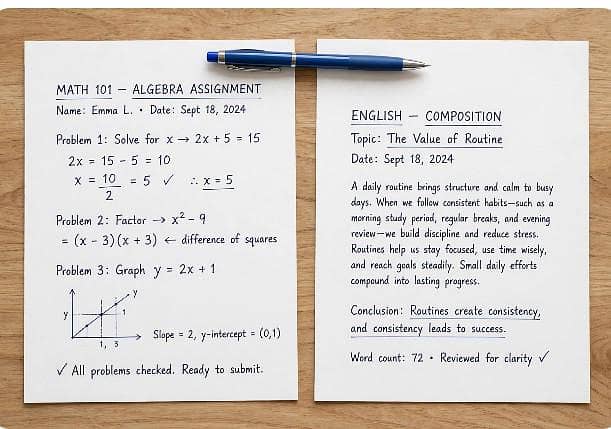 MATH 101 — ALGEBRA ASSIGNMENT
Name: Emma L. • Date: Sept 18, 2024
Problem 1: Solve for x → 2x + 5 = 15
2x = 15 - 5 = 10
x = 10/2 = 5 ✓ ∴ x = 5
Problem 2: Factor → x² - 9
= (x - 3)(x + 3) ← difference of squares
Problem 3: Graph y = 2x + 1
y
y 1
1, 3
Slope = 2, y-intercept = (0,1)
✓ All problems checked. Ready to submit.
ENGLISH — COMPOSITION
Topic: The Value of Routine
Date: Sept 18, 2024
A daily routine brings structure and calm to busy
days. When we follow consistent habits—such as a
morning study period, regular breaks, and evening
review—we build discipline and reduce stress.
Routines help us stay focused, use time wisely,
and reach goals steadily. Small daily efforts
compound into lasting progress.
Conclusion: Routines create consistency,
and consistency leads to success.
Word count: 72 • Reviewed for clarity ✓